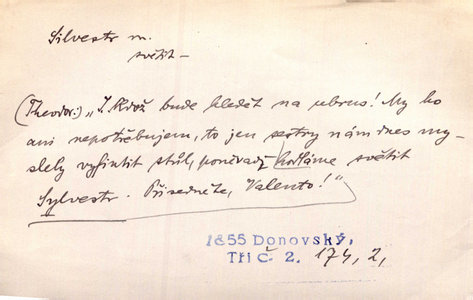 Silvestr m.
světit –
(Theodor:) „I kdož bude hledět na ubrus! My ho
ani nepotřebujem, to jen sestry nám dnes my-
slely vyfintit stůl, poněvadž hodláme světit
Sylvestr. Přisedněte, Valento!"
1855 Donovský,
Tři č. 2. 174, 2,